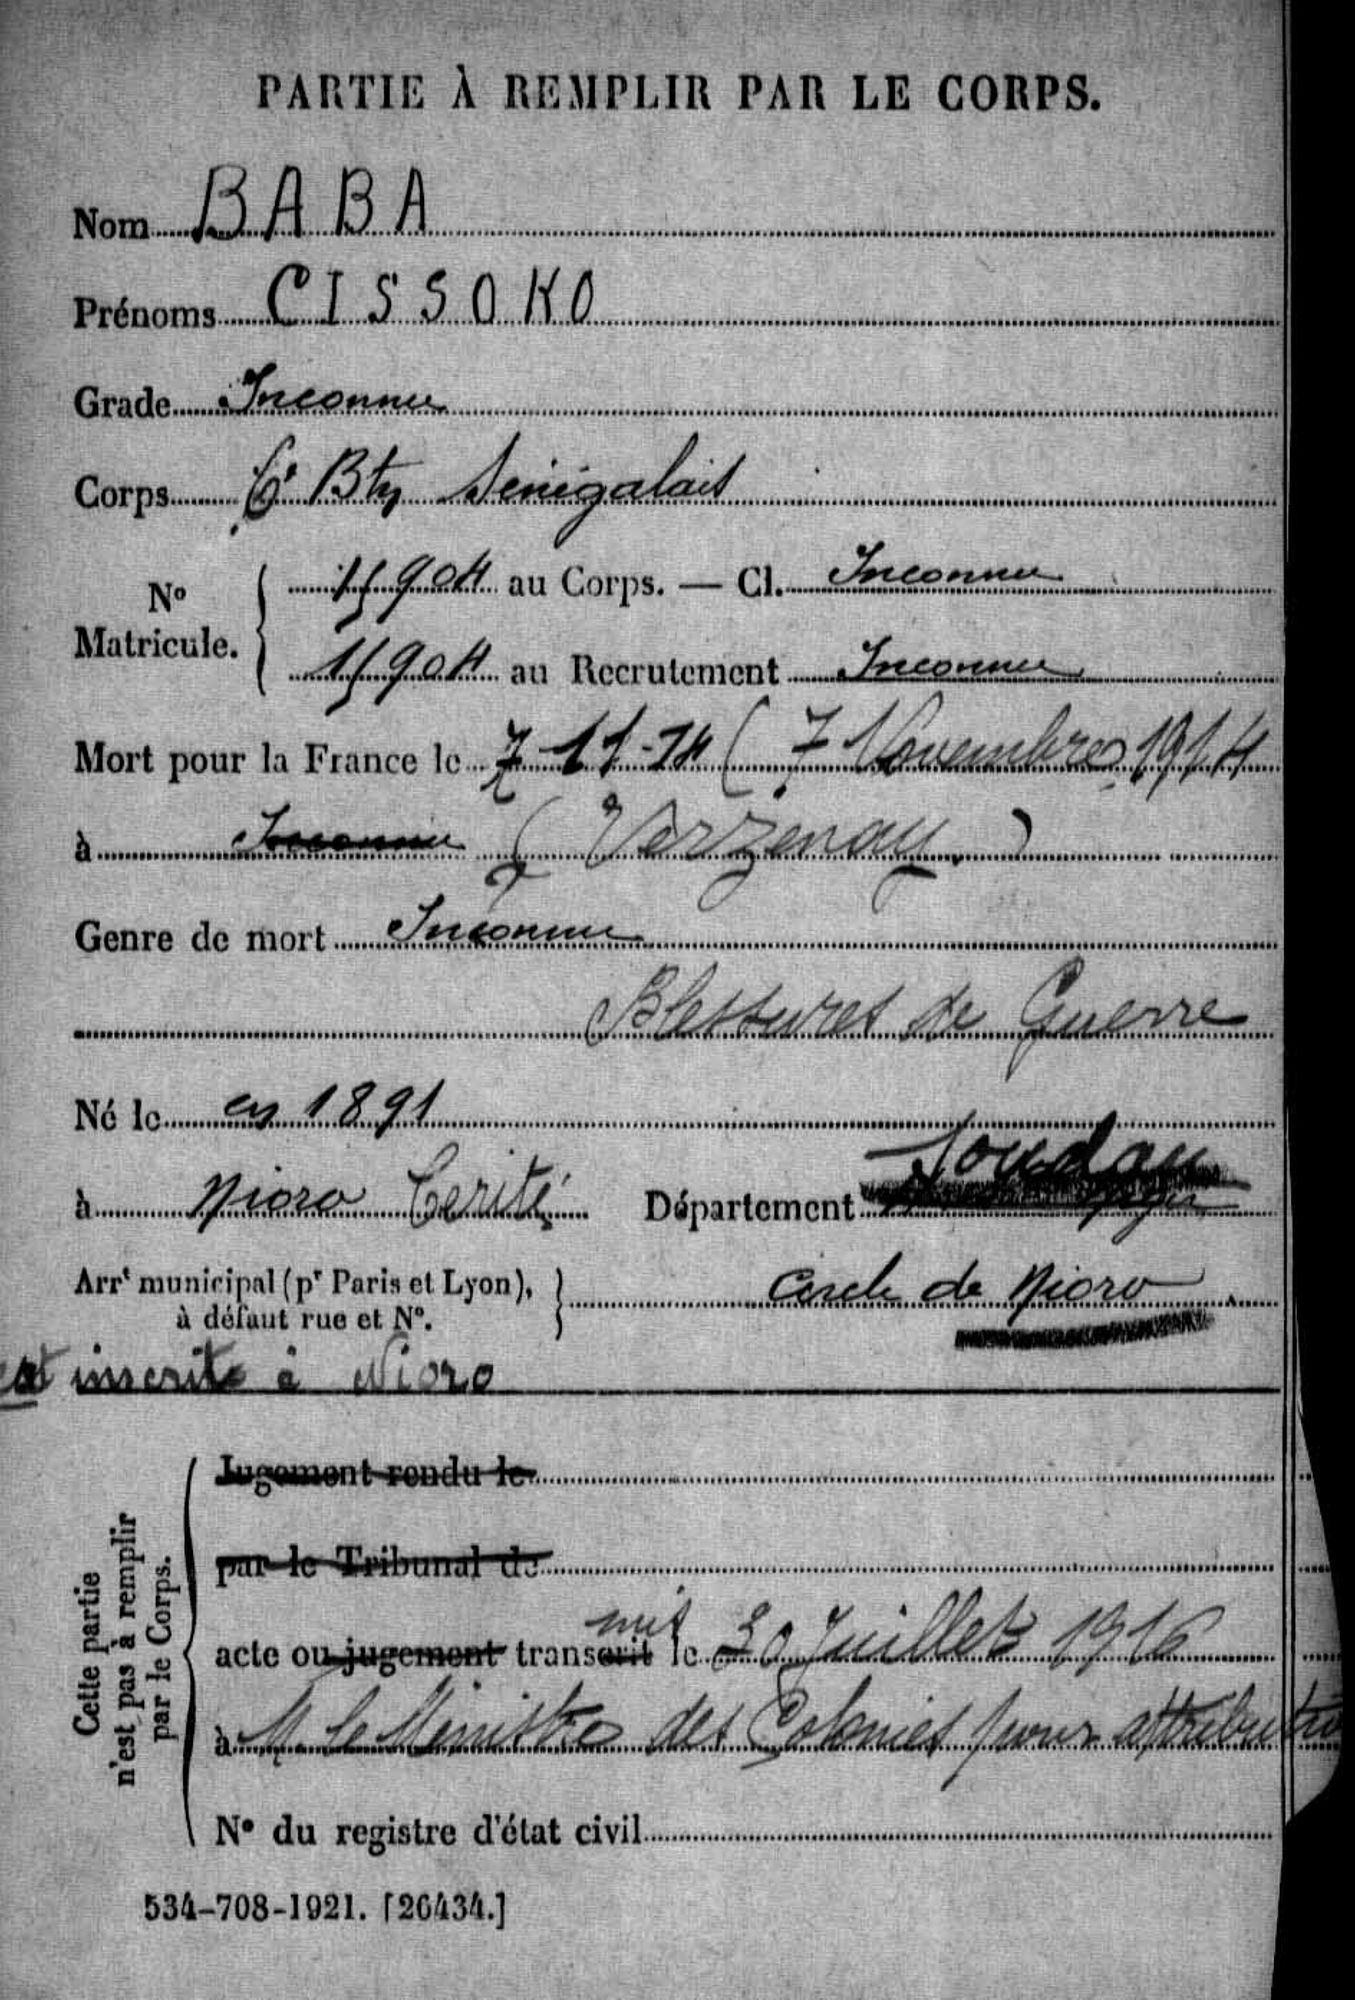 PARTIE À REMPLIR PAR LE CORPS.
Nom BABA
Prénoms CISSOKO
Grade Inconnu
Corps 6e Bton Sénégalais
No Matricule. 15904 au Corps. — Cl. Inconnu
15904 au Recrutement Inconnu
Mort pour la France le 7-11-14 (7 Novembre 1914
à Inconnu (Verzenay)
Genre de mort Inconnu
Blessures de Guerre
Né le en 1891
à Nioro Cerité Département Soudan
Arrt municipal (pr Paris et Lyon), à défaut rue et No. Cercle de Nioro
est inscrite à Nioro
Cette partie n'est pas à remplir par le Corps.
Jugement rendu le
par le Tribunal de
acte ou jugement transcrit mis le 30 Juillet 1916
à M. le Ministre des Colonies pour attribution
No du registre d'état civil
534-708-1921. [26434.]